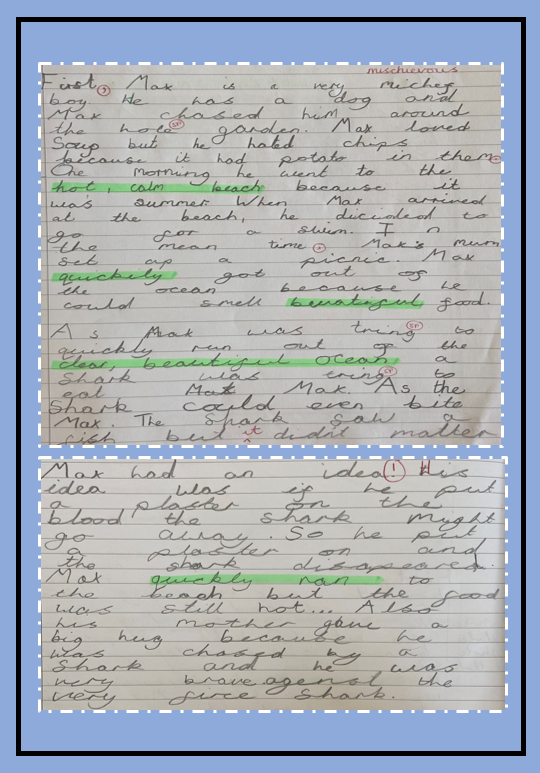 mischievous
First, Max is a very micheg
boy He has a dog and
Max chased him around
the hole sp garden. Max loved
Soup but he hated chips
because it had potato in them.
One morning he went to the
hot, calm beach because it
was summer When Max arrived
at the beach, he dicided to
go for a swim. I n
the mean time, Max's mum
set up a picnic. Max
quickily got out of
the ocean because he
could smell bewatigul good.
As Max was tring sp to
quickly run out of the
clear, beautiful ocean, a
Shark was tring sp to
eat Max. As the
Shark could even bite
Max. The shark saw a
fish but it didn't matter
Max had an idea! His
idea was if he put
a plaster on the
blood the shark might
go away. So he put
a plaster on and
the shark disapeared.
Max quickly ran to
the beach but the good
was still hot... Also
his mother gave a
big hug because he
was chased by a
Shark and he was
very brave agenst the
very firce Shark.